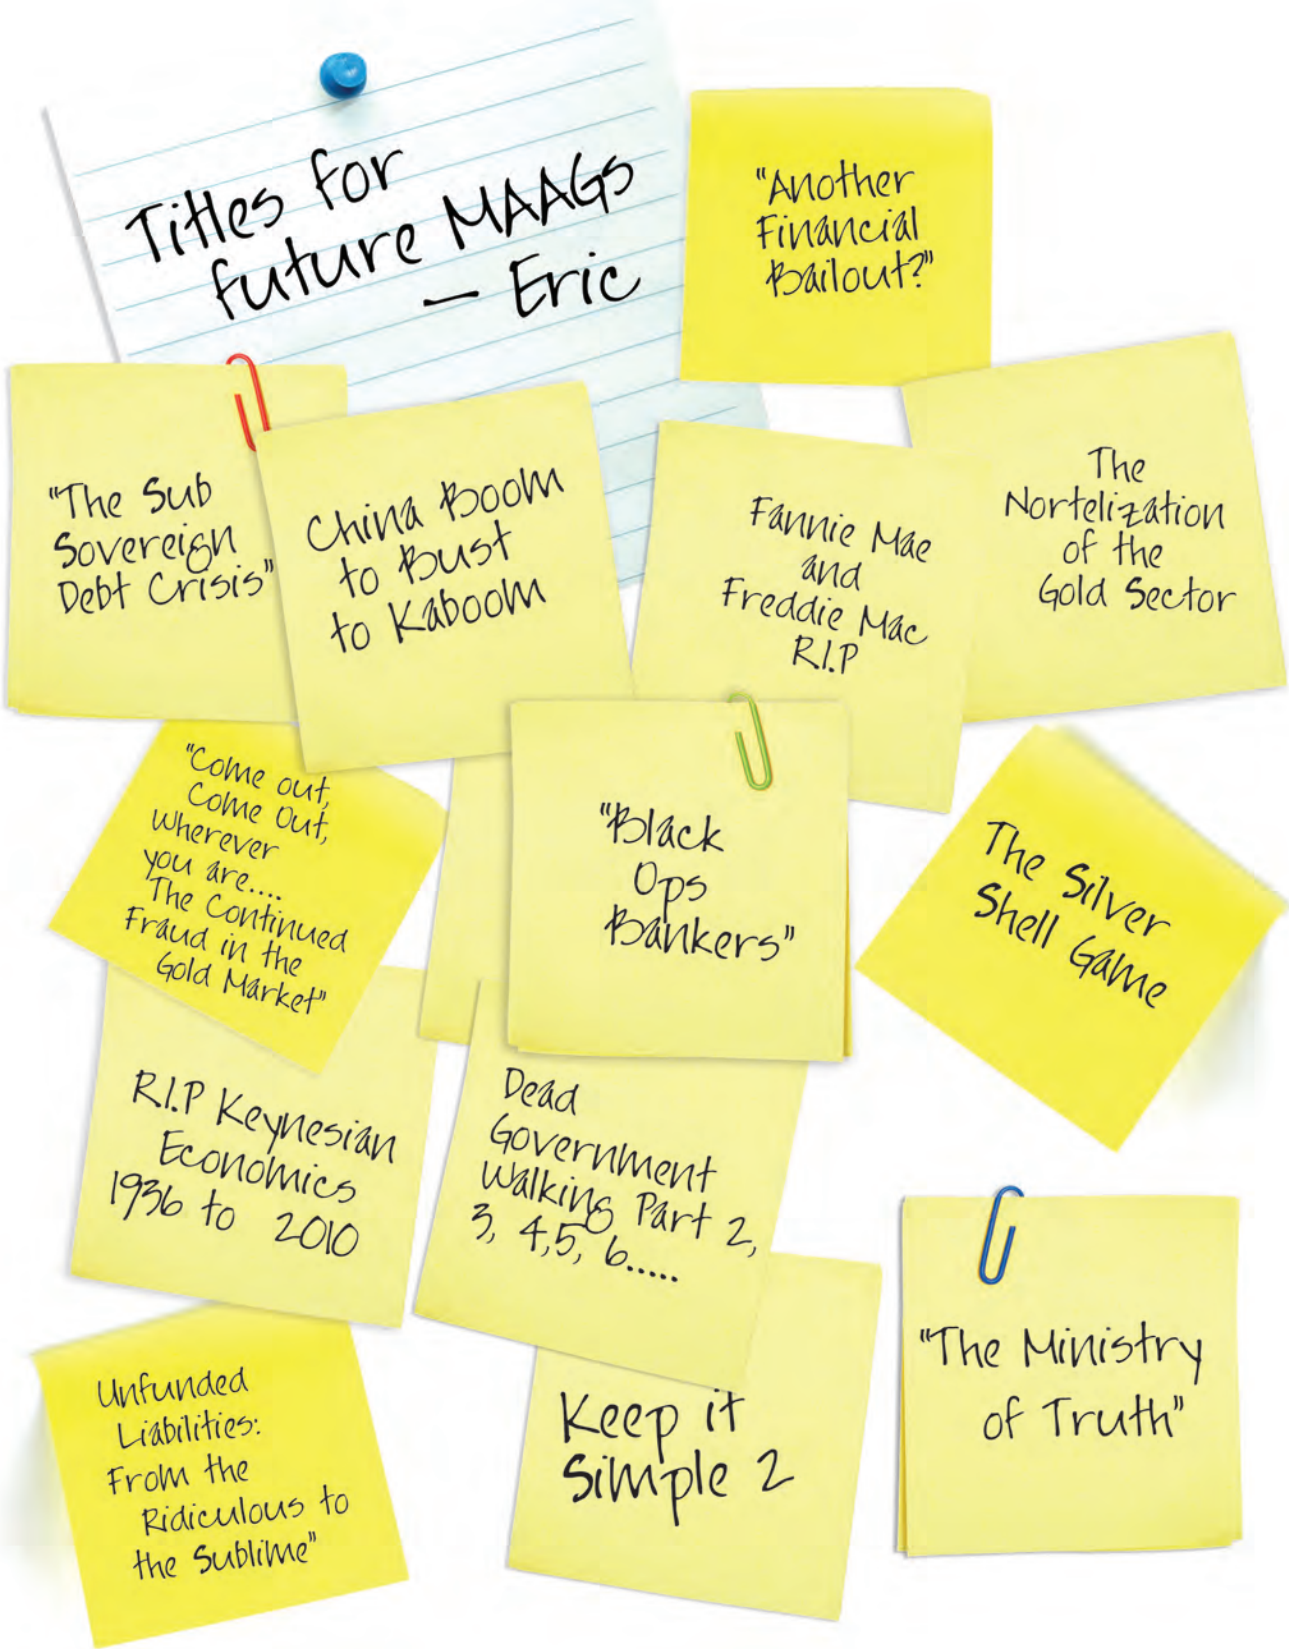 Titles for
future MAAGs
— Eric
"Another
Financial
Bailout?"
"The Sub
Sovereign
Debt Crisis"
China Boom
to Bust
to Kaboom
Fannie Mae
and
Freddie Mac
R.I.P
The
Nortelization
of the
Gold Sector
"Come out,
Come Out,
Wherever
you are....
The Continued
Fraud in the
Gold Market"
"Black
Ops
Bankers"
The Silver
Shell Game
R.I.P Keynesian
Economics
1936 to 2010
Dead
Government
Walking Part 2,
3, 4,5, 6.....
"The Ministry
of Truth"
Unfunded
Liabilities:
From the
Ridiculous to
the Sublime"
Keep it
Simple 2